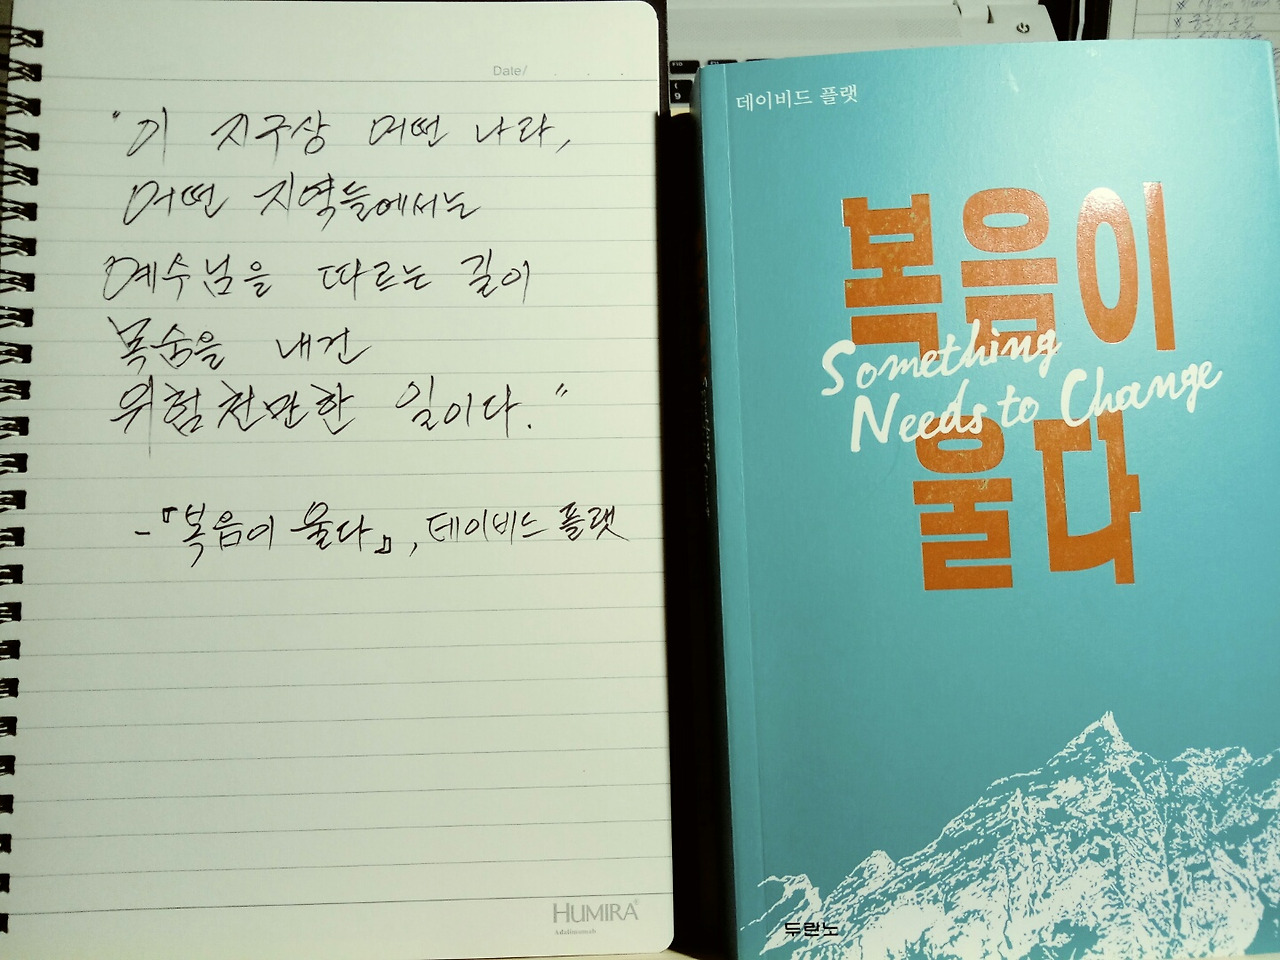 Date/ . . .
"이 지구상 어떤 나라,
어떤 지역들에서는
예수님을 따르는 길이
목숨을 내건
위험천만한 일이다."
-『복음이 울다』, 데이비드 플랫
HUMIRA®
Adalimumab
데이비드 플랫
복음이
Something
Needs to Change
울다
두란노